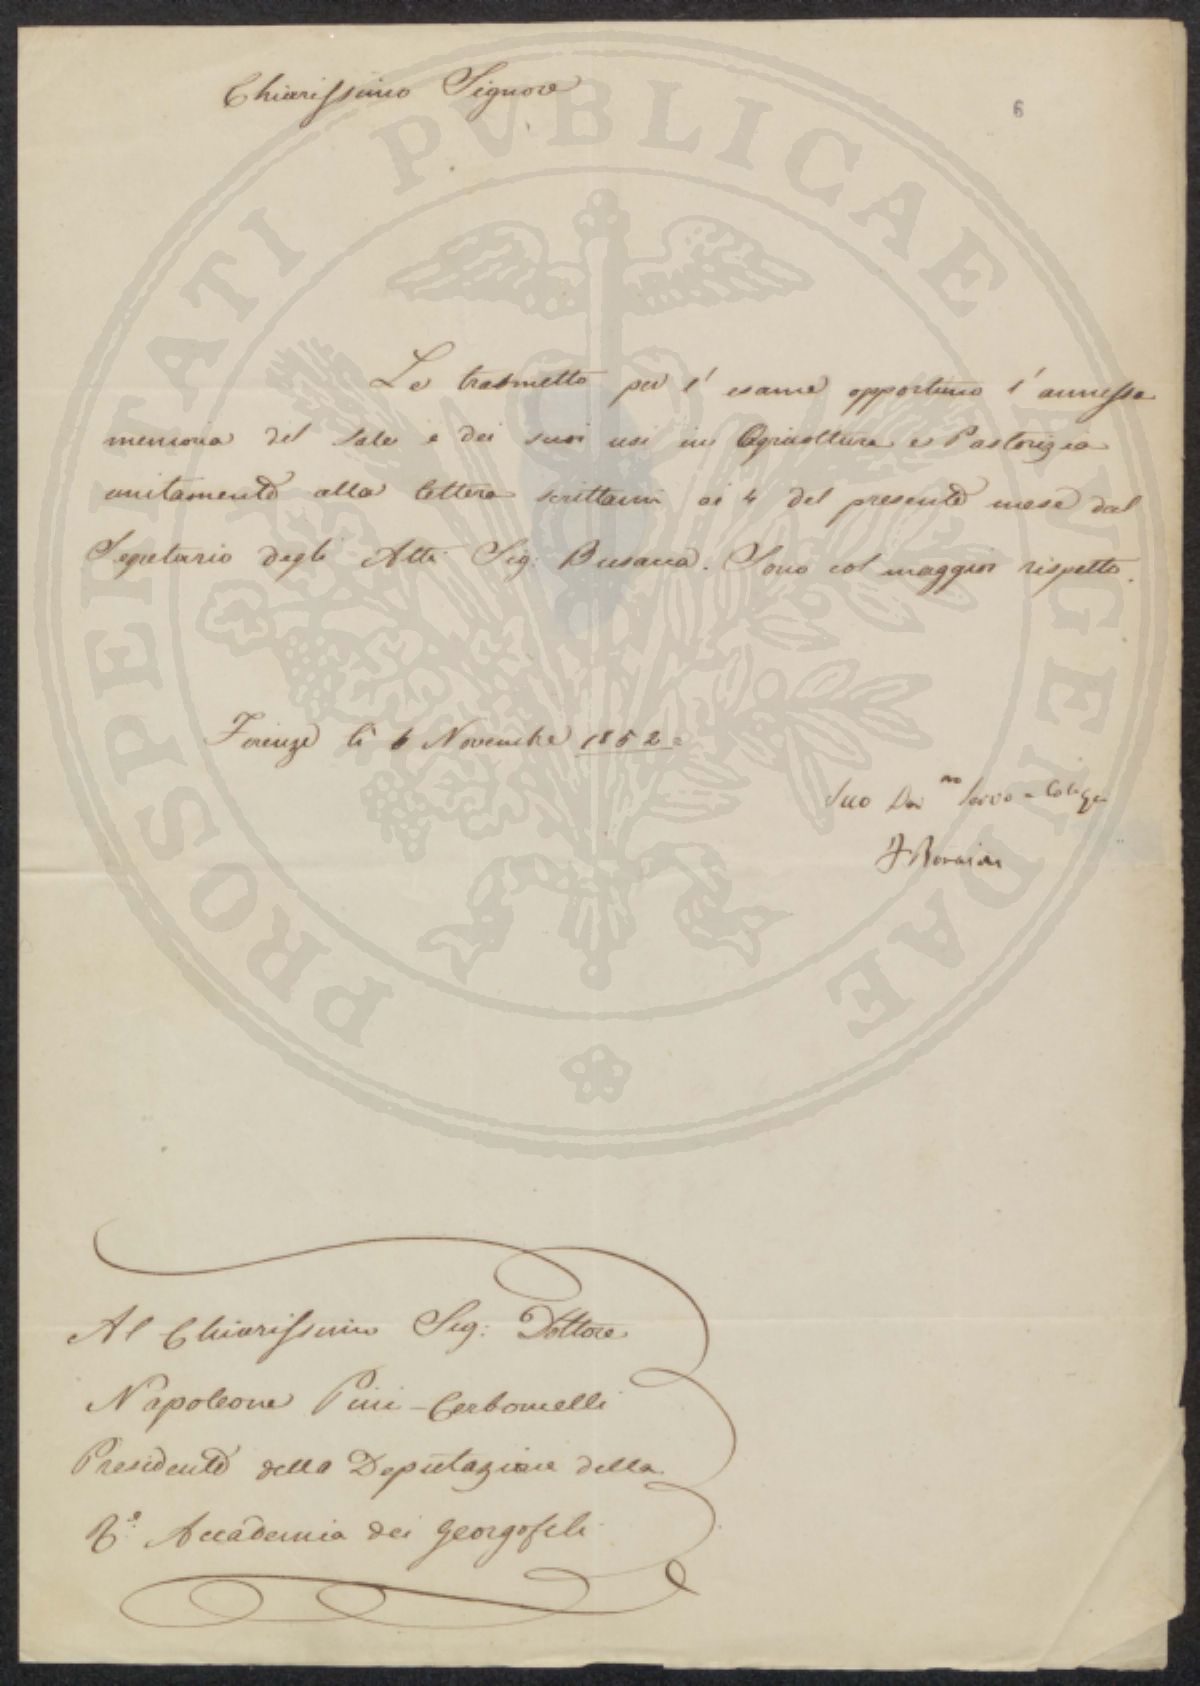 Chiarissimo Signore
6
Le trasmetto per l' esame opportuno l' annessa
memoria del Sale e dei suoi usi in Agricoltura e Pastorizia
unitamente alla lettera scrittami ai 4 del presente mese dal
Segretario degli Atti Sig: Busacca. Sono col maggior rispetto.
Firenze li 6 Novembre 1852=
Suo Dev mo Servo e Collega
Al Chiarissimo Sig: Dottore
Napoleone Pini-Cerbonelli
Presidente della Deputazione della
R.e Accademia dei Georgofili
PROSPERITATI PVBLICAE AVGENDAE